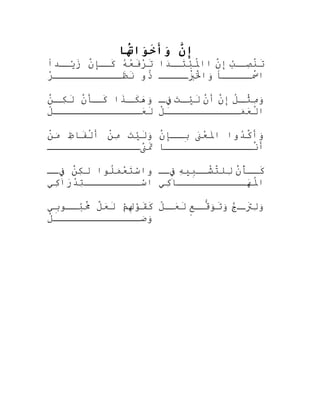 إِنَّ وَ أَخَوَاتُهَا
تَنْصِبُ إِنَّ االْمُبْتَدَا تَرْفَعُهُ كَإِنَّ زَيْدًا
اسْمًا وَالْخَبَرْ ذُو نَظَرْ
وَمِثْلُ إِنَّ أَنَّ لَيْتَ فِي وَهَكَذَا كَأَنَّ لَكِنَّ
الْعَمَلْ لَعَلْ
وَأَكَّدُوا الْمَعْنَى بِإِنَّ وَلَيْتَ مِنْ أَلْفَاظِ مَنْ
أَنَّا تَمَنَّى
كَأَنَّ لِلتَّشْبِيهِ فِي وَاسْتَعْمَلُوا لَكِنَّ فِي
الْمُحَاكِي اسْتِدْرَاكِي
وَلِتَرَجٍّ وَتَوَقُّعٍ لَعَلْ كَقَوْلِهِمْ لَعَلَّ مَحْبُوبِي
وَصَلْ